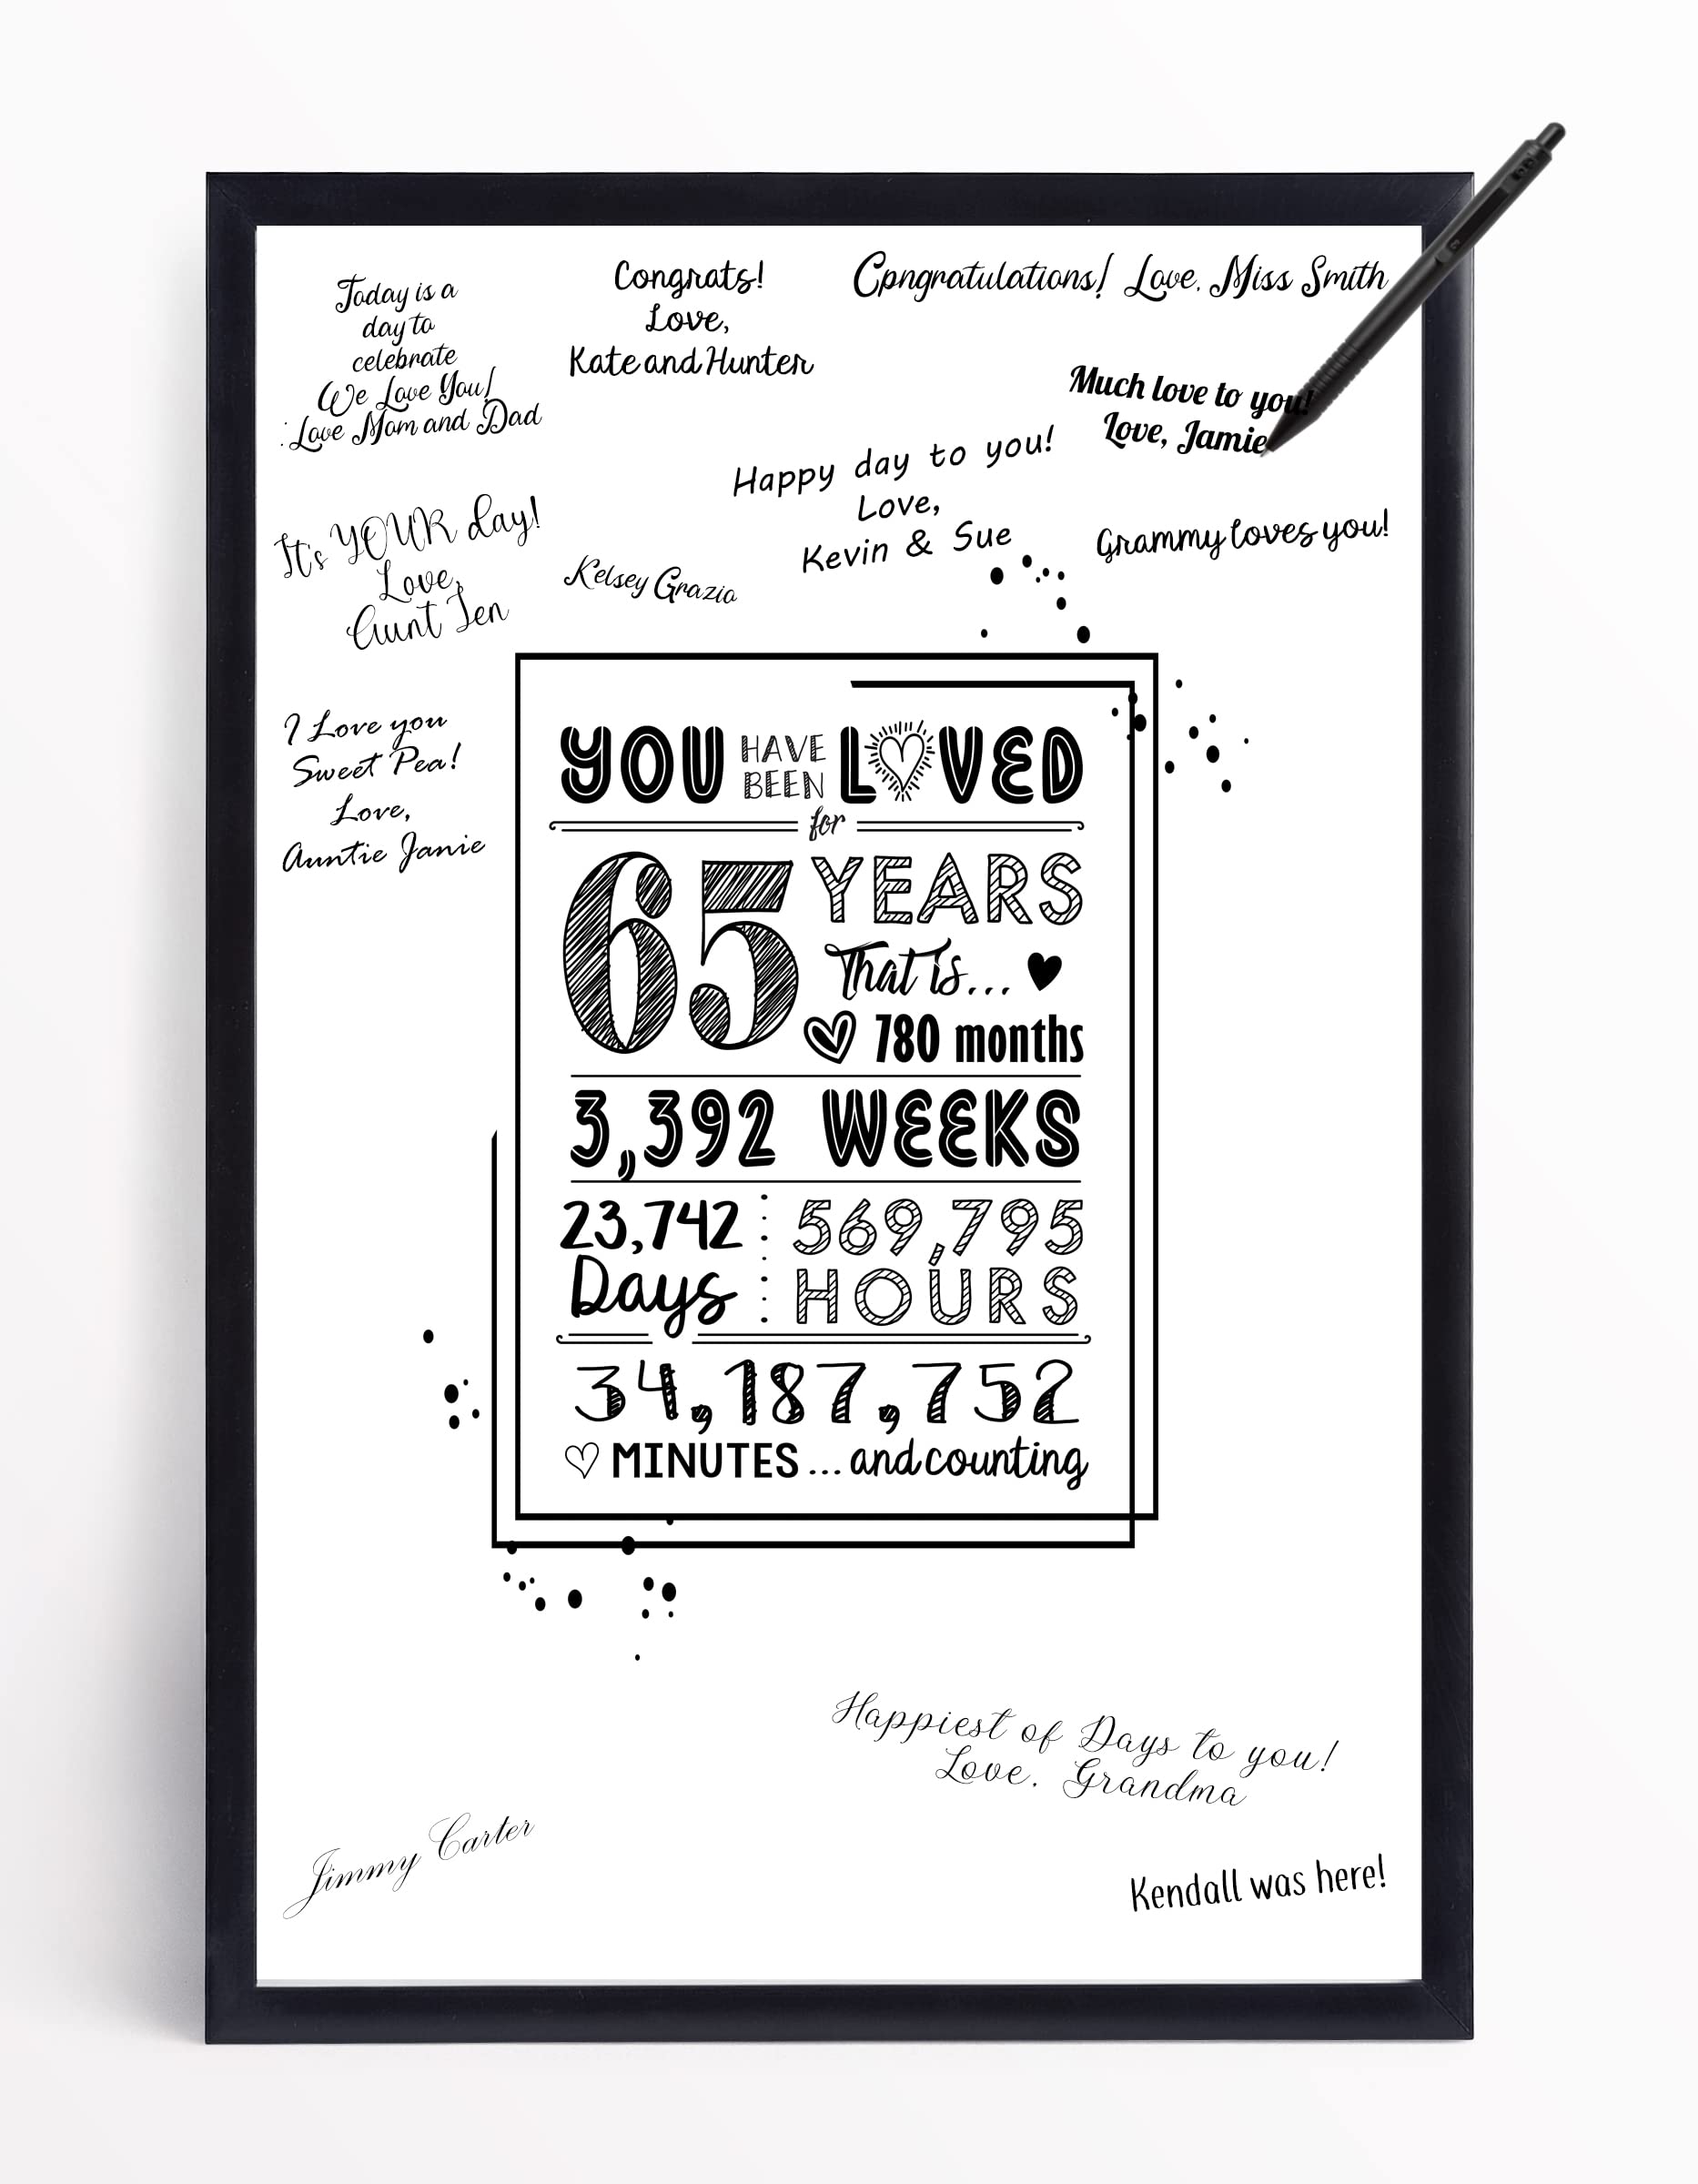 Today is a
day to
celebrate
We Love You!
Love Mom and Dad
Congrats!
Love,
Kate and Hunter
Congratulations! Love, Miss Smith
Much love to you!
Love, Jamie
Happy day to you!
Love,
Kevin & Sue
Grammy loves you!
It's YOUR day!
Love,
Aunt Jen
Kelsey Grazia
I Love you
Sweet Pea!
Love,
Auntie Janie
YOU HAVE BEEN LOVED
for
65 YEARS
That is...
780 months
3,392 WEEKS
23,742 Days
569,795 HOURS
34,187,752
MINUTES... and counting
Happiest of Days to you!
Love, Grandma
Jimmy Carter
Kendall was here!